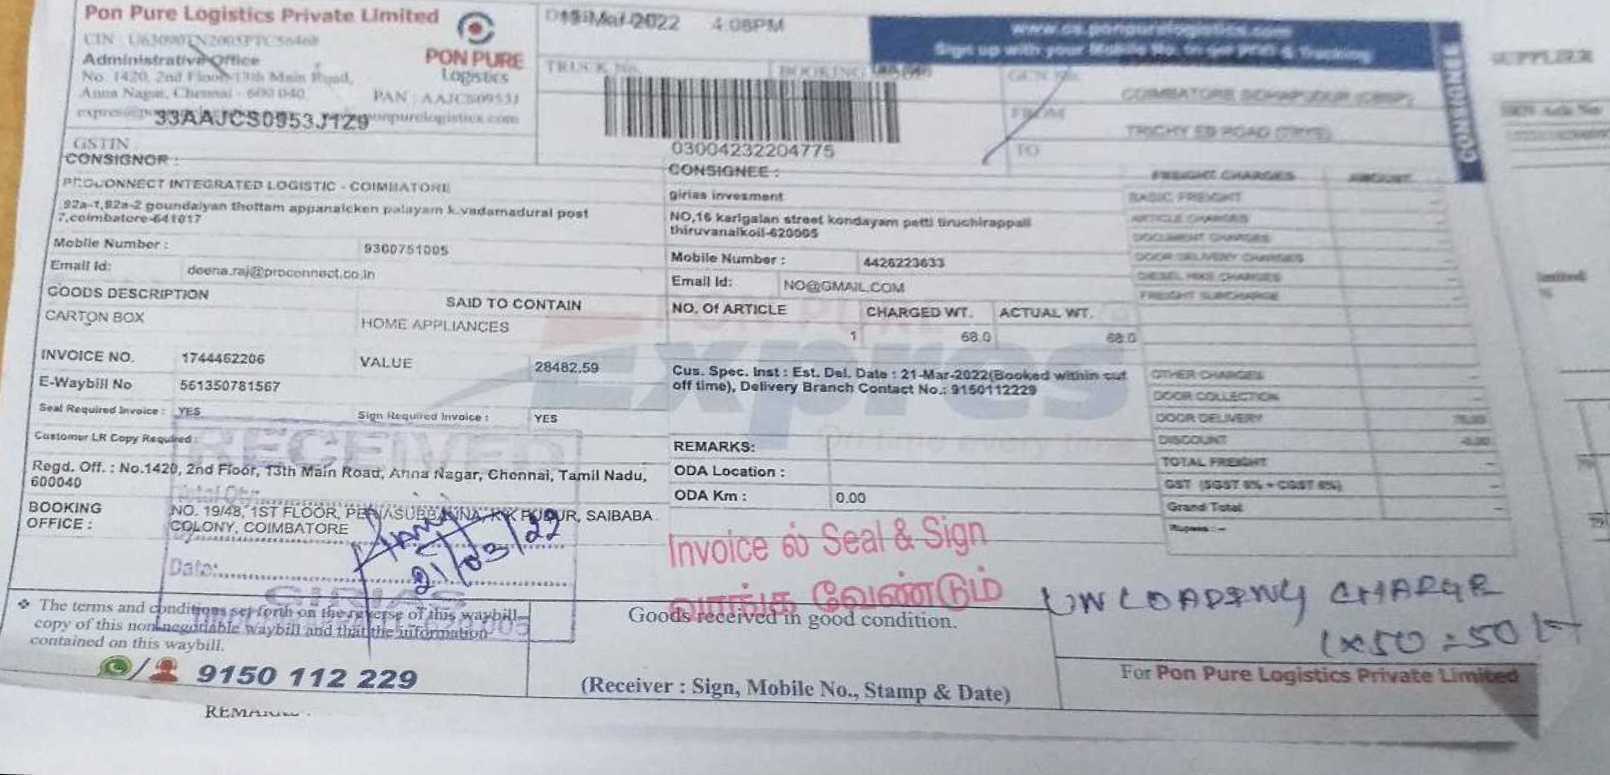 Pon Pure Logistics Private Limited
Administrative Office
No. 1420, 2nd Floor, 13th Main Road,
Anna Nagar, Chennai - 600 040
PAN : AAJCS0953J
33AAJCS0953J1Z9
GSTIN
PON PURE
Logistics
2022 4:08PM
www.cs.ponpurelogistics.com
Sign up with your Mobile No. to get POD & Tracking
CONSIGNEE
TRUCK No.
BOOKING
GCN No.
FROM
COIMBATORE
TO
TRICHY EB ROAD
03004232204775
CONSIGNOR :
PROCONNECT INTEGRATED LOGISTIC - COIMBATORE
,82a-1,82a-2 goundaiyan thottam appanaicken palayam k.vadamadurai post
7,coimbatore-641017
Mobile Number : 9300751005
Email Id: deena.raj@proconnect.co.in
CONSIGNEE :
girias invesment
NO,16 karigalan street kondayam petti tiruchirappali
thiruvanaikoil-620005
Mobile Number : 4426223633
Email Id: NO@GMAIL.COM
GOODS DESCRIPTION SAID TO CONTAIN
CARTON BOX HOME APPLIANCES
NO. Of ARTICLE CHARGED WT. ACTUAL WT.
1 68.0 68.0
INVOICE NO. 1744462206 VALUE 28482.59
E-Waybill No 561350781567
Seal Required Invoice : YES Sign Required Invoice : YES
Customer LR Copy Required :
Cus. Spec. Inst : Est. Del. Date : 21-Mar-2022(Booked within cut
off time), Delivery Branch Contact No.: 9150112229
REMARKS:
ODA Location :
ODA Km : 0.00
FREIGHT CHARGES AMOUNT
BASIC FREIGHT
ARTICLE CHARGES
DOCUMENT CHARGES
DOOR DELIVERY CHARGES
DIESEL HIKE CHARGES
FREIGHT SURCHARGE
OTHER CHARGES
DOOR COLLECTION
DOOR DELIVERY
DISCOUNT
TOTAL FREIGHT
GST (SGST 6% + CGST 6%)
Grand Total
Rupees : -
Regd. Off. : No.1420, 2nd Floor, 13th Main Road, Anna Nagar, Chennai, Tamil Nadu,
600040
BOOKING
OFFICE :
NO. 19/48, 1ST FLOOR, PUDUR, SAIBABA
COLONY, COIMBATORE
RECEIVED
Date:
GIRIAS
21/03/22
Invoice ல் Seal & Sign
வாங்க வேண்டும்
UNLOADING CHARGE
1x50 = 50
❖ The terms and conditions set forth on the reverse of this waybill
copy of this non negotiable waybill and that the information
contained on this waybill.
9150 112 229
Goods received in good condition.
(Receiver : Sign, Mobile No., Stamp & Date)
For Pon Pure Logistics Private Limited
SUPPLIER